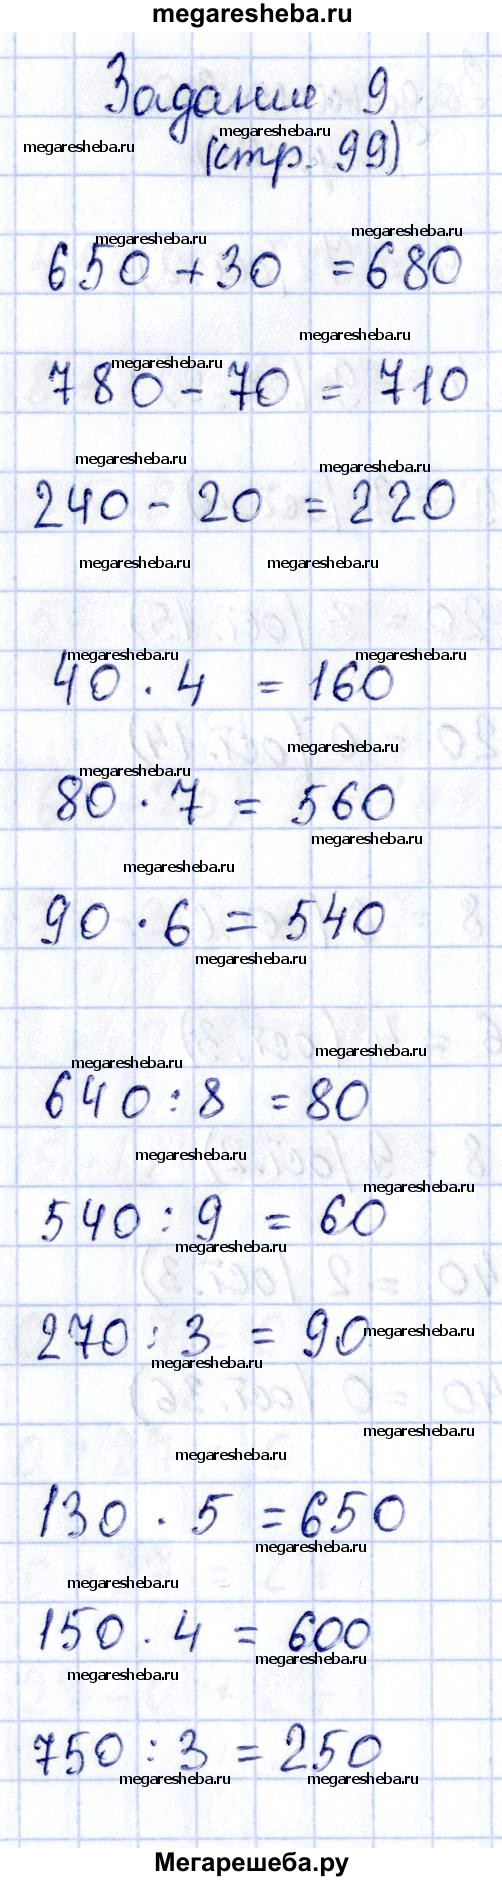 megaresheba.ru
Задание 9
megaresheba.ru
megaresheba.ru
(стр. 99)
megaresheba.ru
megaresheba.ru
650 + 30 = 680
megaresheba.ru
megaresheba.ru
780 - 70 = 710
megaresheba.ru
megaresheba.ru
240 - 20 = 220
megaresheba.ru
megaresheba.ru
megaresheba.ru
megaresheba.ru
40 · 4 = 160
megaresheba.ru
megaresheba.ru
80 · 7 = 560
megaresheba.ru
megaresheba.ru
90 · 6 = 540
megaresheba.ru
megaresheba.ru
megaresheba.ru
640 : 8 = 80
megaresheba.ru
megaresheba.ru
540 : 9 = 60
megaresheba.ru
270 : 3 = 90
megaresheba.ru
megaresheba.ru
megaresheba.ru
megaresheba.ru
130 · 5 = 650
megaresheba.ru
megaresheba.ru
150 · 4 = 600
megaresheba.ru
megaresheba.ru
750 : 3 = 250
megaresheba.ru
megaresheba.ru
Мегарешеба.ру